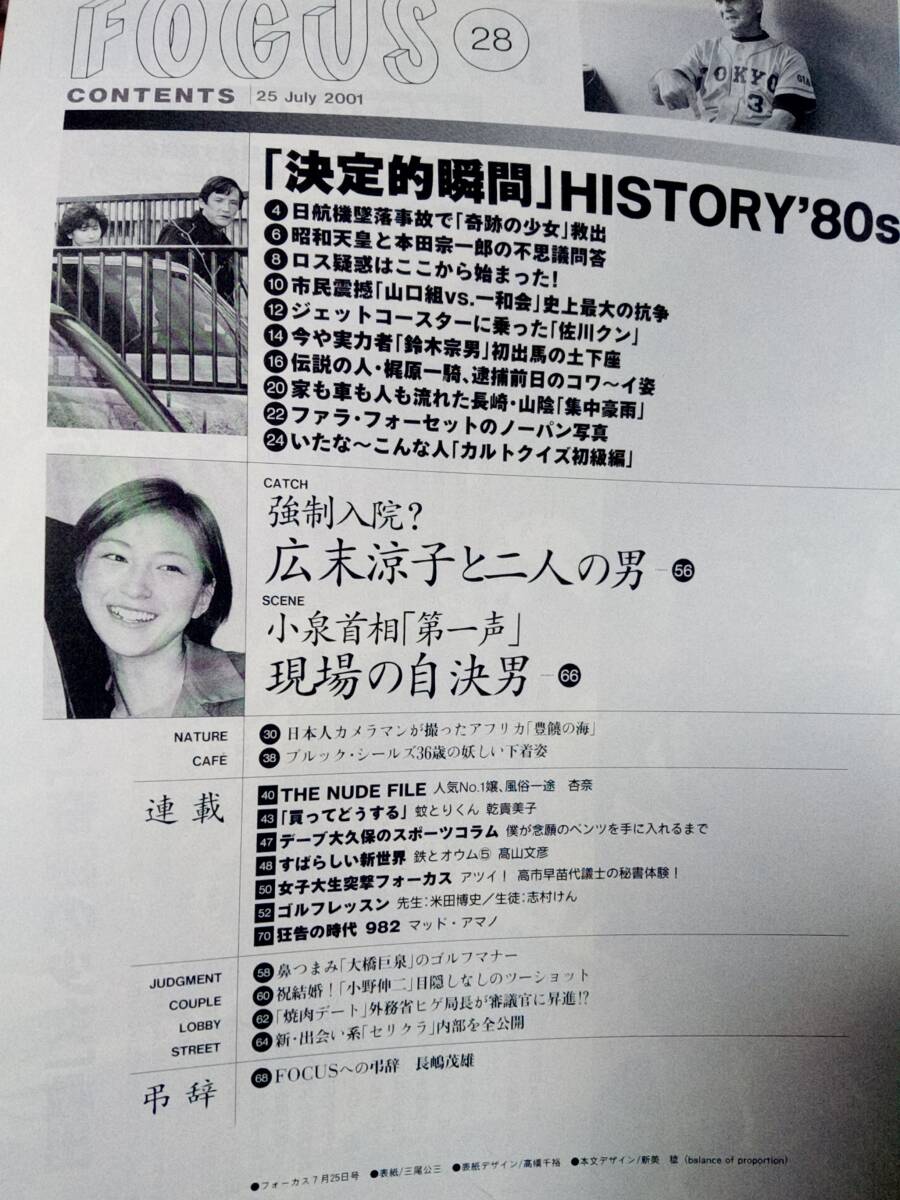 FOCUS 28
CONTENTS 25 July 2001
OKYO
3
「決定的瞬間」HISTORY'80s
4 日航機墜落事故で「奇跡の少女」救出
6 昭和天皇と本田宗一郎の不思議問答
8 ロス疑惑はここから始まった!
10 市民震撼「山口組vs.一和会」史上最大の抗争
12 ジェットコースターに乗った「佐川クン」
14 今や実力者「鈴木宗男」初出馬の土下座
16 伝説の人・梶原一騎、逮捕前日のコワ〜イ姿
20 家も車も人も流れた長崎・山陰「集中豪雨」
22 ファラ・フォーセットのノーパン写真
24 いたな〜こんな人「カルトクイズ初級編」
CATCH
強制入院?
広末涼子と二人の男 56
SCENE
小泉首相「第一声」
現場の自決男 66
NATURE 30 日本人カメラマンが撮ったアフリカ「豊饒の海」
CAFÉ 38 ブルック・シールズ36歳の妖しい下着姿
連載
40 THE NUDE FILE 人気No.1嬢、風俗一途 杏奈
43 「買ってどうする」 蚊とりくん 乾貴美子
47 デーブ大久保のスポーツコラム 僕が念願のベンツを手に入れるまで
48 すばらしい新世界 鉄とオウム⑤ 髙山文彦
50 女子大生突撃フォーカス アツイ! 高市早苗代議士の秘書体験!
52 ゴルフレッスン 先生:米田博史/生徒:志村けん
70 狂告の時代 982 マッド・アマノ
JUDGMENT 58 鼻つまみ「大橋巨泉」のゴルフマナー
COUPLE 60 祝結婚!「小野伸二」目隠しなしのツーショット
LOBBY 62 「焼肉デート」外務省ヒゲ局長が審議官に昇進!?
STREET 64 新・出会い系「セリクラ」内部を全公開
弔辞 68 FOCUSへの弔辞 長嶋茂雄
●フォーカス7月25日号 ●表紙/三尾公三 ●表紙デザイン/高橋千裕 ●本文デザイン/新美 稔 (balance of proportion)